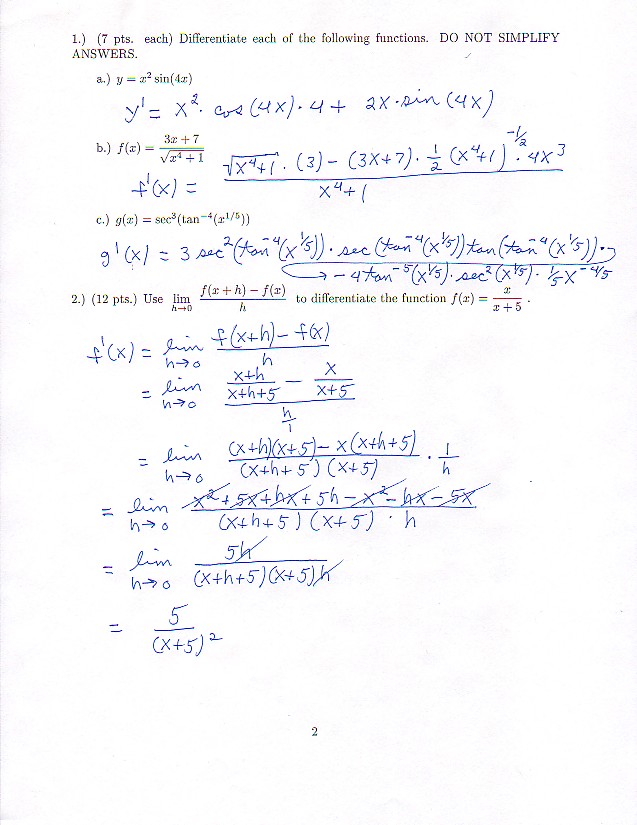 1.) (7 pts. each) Differentiate each of the following functions. DO NOT SIMPLIFY
ANSWERS.
a.) y = x² sin(4x)
y' = x² · cos(4x)·4 + 2x·sin(4x)
b.) f(x) = (3x + 7)/√(x⁴ + 1)
f'(x) = (√(x⁴+1) · (3) − (3x+7) · ½ (x⁴+1)^(-1/2) · 4x³)/(x⁴+1)
c.) g(x) = sec³(tan⁻⁴(x^(1/5)))
g'(x) = 3 sec²(tan⁻⁴(x^(1/5))) · sec(tan⁻⁴(x^(1/5))) tan(tan⁻⁴(x^(1/5))) ·
→ −4 tan⁻⁵(x^(1/5)) · sec²(x^(1/5)) · ⅕ x^(-4/5)
2.) (12 pts.) Use lim h→0 (f(x + h) − f(x))/h to differentiate the function f(x) = x/(x + 5) .
f'(x) = lim h→0 (f(x+h) − f(x))/h
= lim h→0 ((x+h)/(x+h+5) − x/(x+5))/(h/1)
= lim h→0 ((x+h)(x+5) − x(x+h+5))/((x+h+5)(x+5)) · 1/h
= lim h→0 (x² + 5x + hx + 5h − x² − hx − 5x)/((x+h+5)(x+5) · h)
= lim h→0 5h/((x+h+5)(x+5)h)
= 5/(x+5)²
2